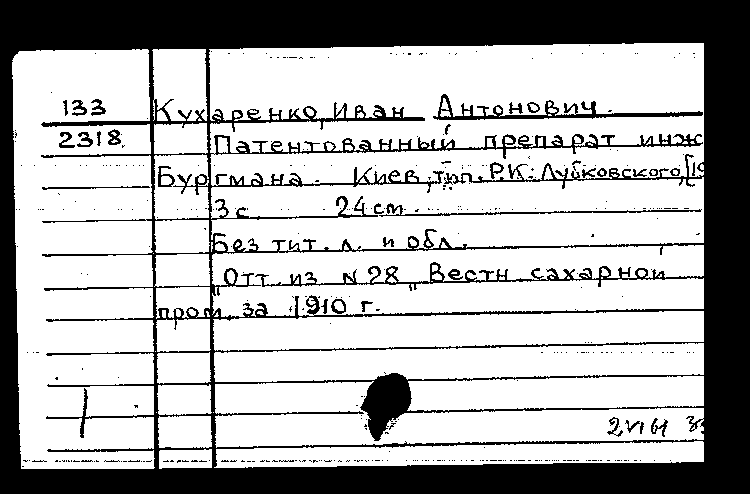 133 Кухаренко, Иван Антонович.
2318. Патентованный препарат инж
Бургмана. Киев, тип. Р.К. Лубковского, [19
3 с. 24 см.
Без тит. л. и обл.
"Отт. из N 28 "Вестн. сахарной
пром. за 1910 г.